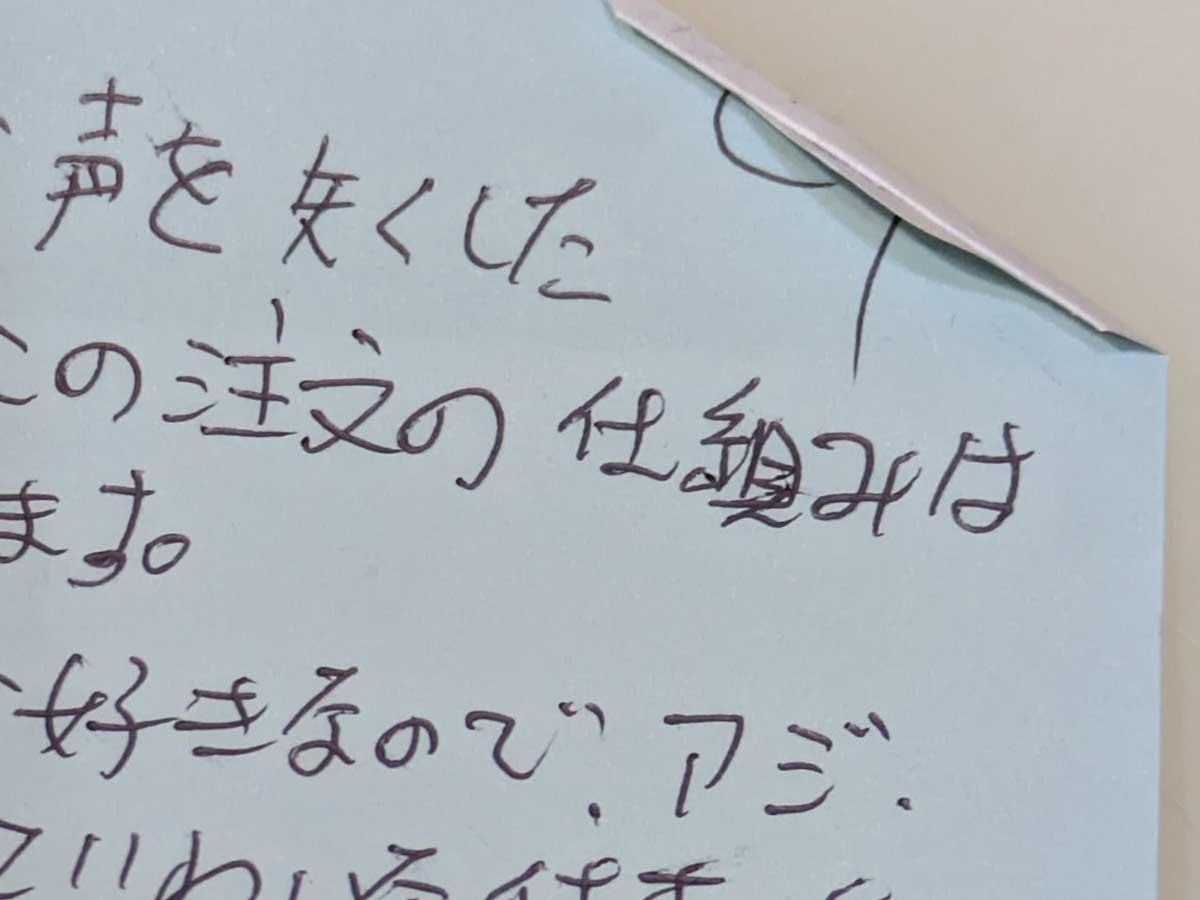 声を失くした
の注文の仕組みは
ます。
好きなので、アジ、